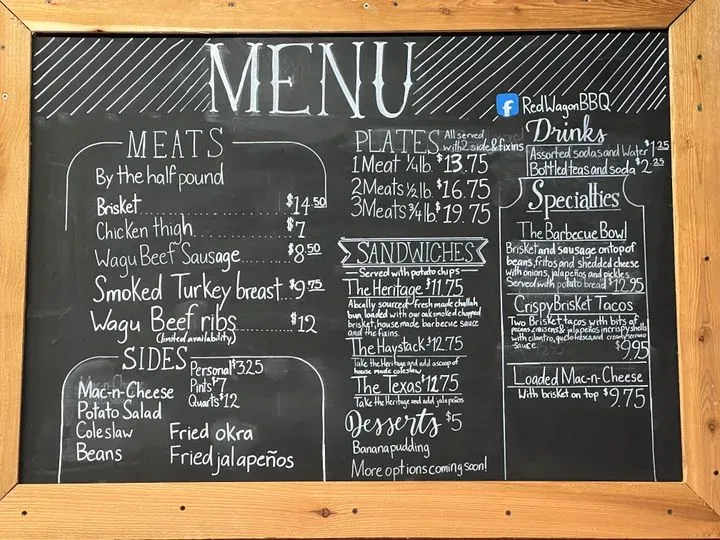 MENU
f RedWagonBBQ
MEATS
By the half pound
Brisket............ $14.50
Chicken thigh............ $7
Wagu Beef Sausage......... $8.50
Smoked Turkey breast... $9.75
Wagu Beef ribs......... $12
(limited availability)
SIDES
Personal $3.25
Pints $7
Quarts $12
Mac-n-Cheese
Potato Salad
Coleslaw
Beans
Fried okra
Fried jalapeños
PLATES All served
with 2 side & fixins
1 Meat 1/4 lb. $13.75
2 Meats 1/2 lb. $16.75
3 Meats 3/4 lb. $19.75
SANDWICHES
Served with potato chips
The Heritage $11.75
A locally sourced fresh made challah
bun loaded with our oak smoked chopped
brisket, house made barbecue sauce
and the fixins.
The Haystack $12.75
Take the Heritage and add a scoop of
house made coleslaw
The Texas $12.75
Take the Heritage and add jalapeños
Desserts $5
Banana pudding
More options coming soon!
Drinks
Assorted sodas and Water $1.25
Bottled teas and soda $2.25
Specialties
The Barbecue Bowl
Brisket and sausage on top of
beans, fritos and shedded cheese
with onions, jalapeños and pickles
Served with potato bread $12.95
Crispy Brisket Tacos
Two Brisket tacos with bits of
pecans, craisens & jalapeños in crispy shells
with cilantro, and creamy serrano
sauce. $9.95
Loaded Mac-n-Cheese
With brisket on top $9.75